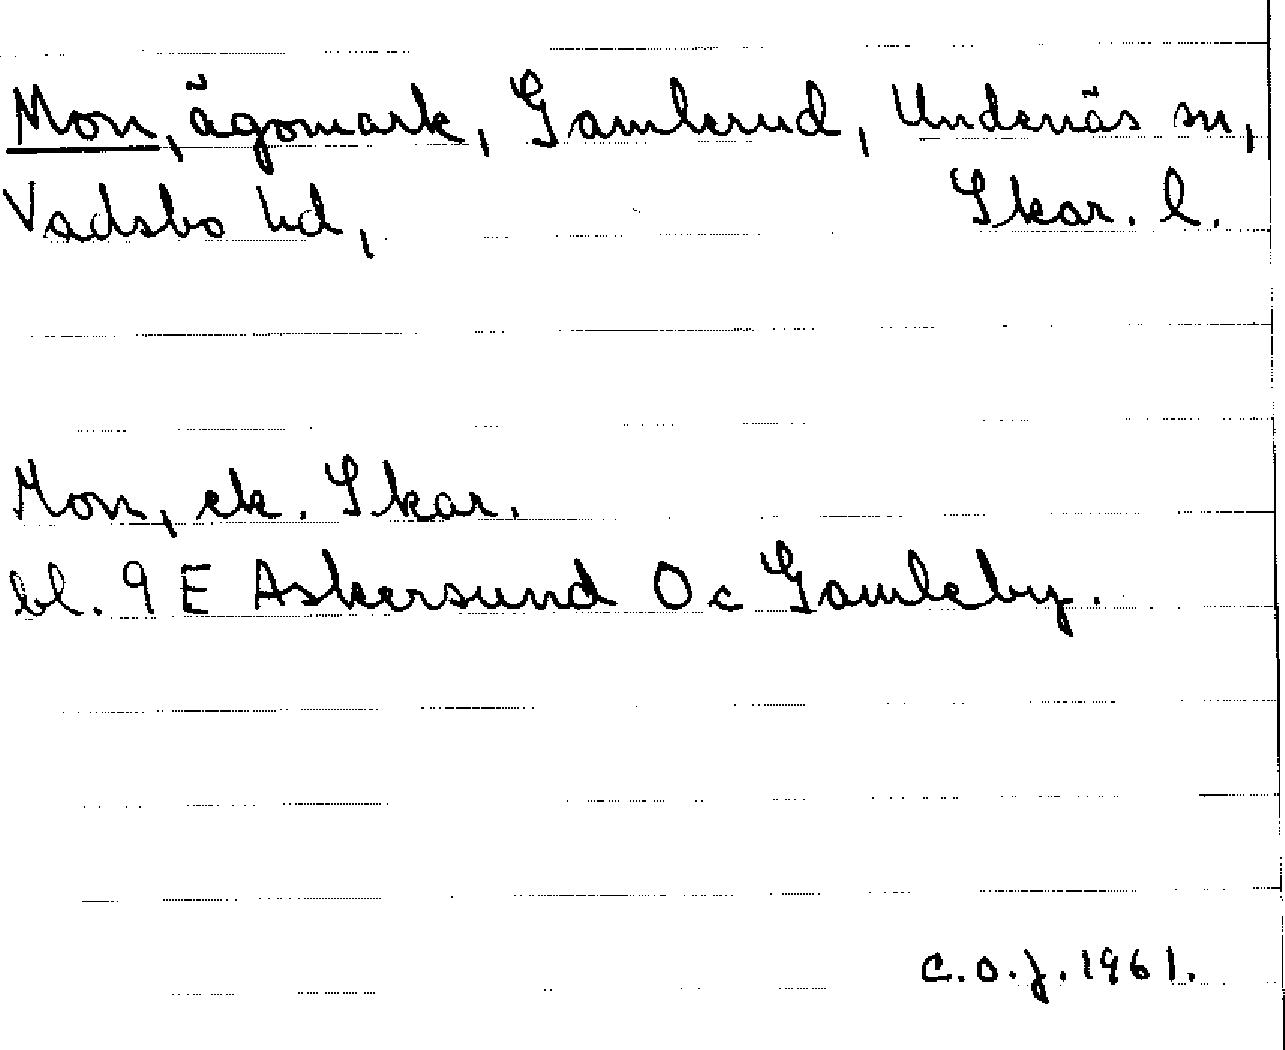 Mon, ägomark, Gamlerud, Undenäs sn,
Vadsbo hd, Skar. l.
Mon, ek. Skar.
bl. 9 E Askersund O c Gamleby.
C.O.J. 1961.